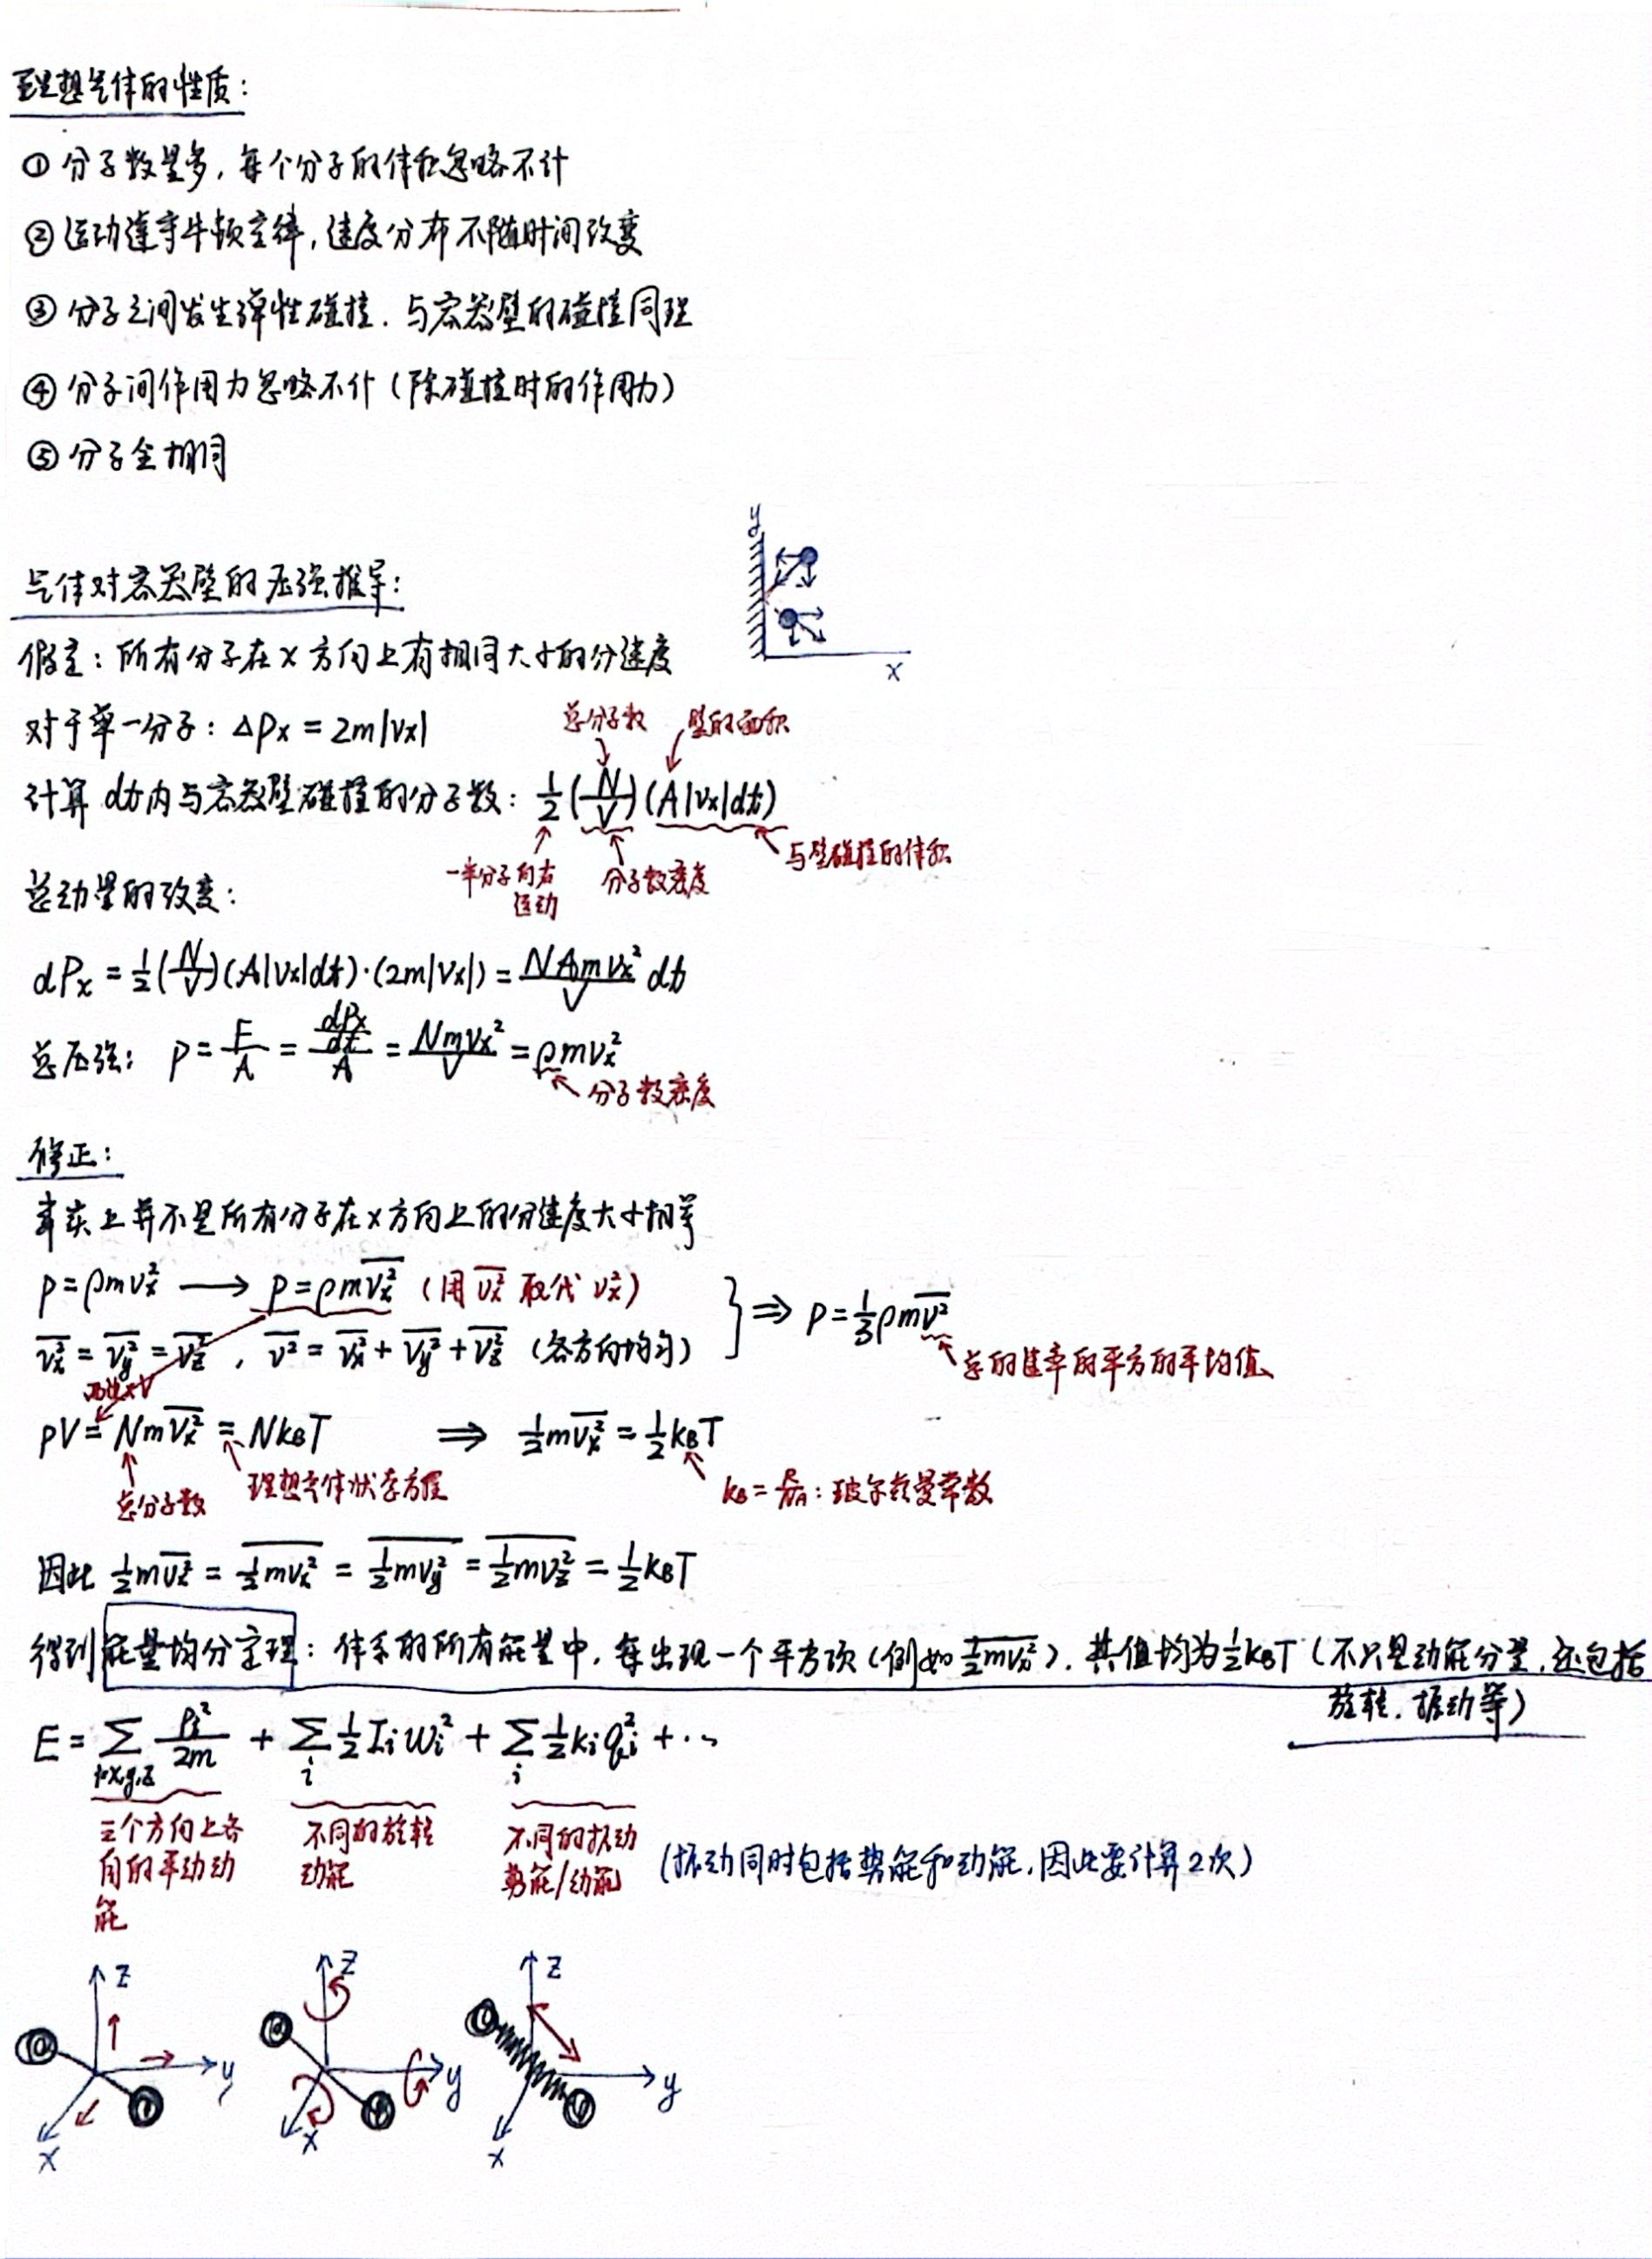 理想气体的性质：
① 分子数量多，每个分子的体积忽略不计
② 运动遵守牛顿定律，速度分布不随时间改变
③ 分子之间发生弹性碰撞．与容器壁的碰撞同理
④ 分子间作用力忽略不计（除碰撞时的作用力）
⑤ 分子全相同
y
x
气体对容器壁的压强推导：
假定：所有分子在 x 方向上有相同大小的分速度
对于单一分子：ΔPx = 2m|vx|
总分子数 壁的面积
计算 dt内与容器壁碰撞的分子数：1/2 (N/V) (A|vx|dt)
一半分子向右运动 分子数密度 与壁碰撞的体积
总动量的改变：
dPx = 1/2 (N/V) (A|vx|dt)·(2m|vx|) = NAmvx²/V dt
总压强：P = F/A = (dPx/dt)/A = Nmvx²/V = ρmvx²
分子数密度
修正：
事实上并不是所有分子在x方向上的分速度大小相等
p = ρmvx² ⟶ p = ρm\overline{vx²} （用 \overline{vx²} 取代 vx²）
\overline{vx²} = \overline{vy²} = \overline{vz²} ， \overline{v²} = \overline{vx²} + \overline{vy²} + \overline{vz²} （各方向均匀） } ⟹ p = 1/3 ρm\overline{v²}
总的速率的平方的平均值
两边×V
pV = Nm\overline{vx²} = NkBT ⟹ 1/2 m\overline{vx²} = 1/2 kBT
总分子数 理想气体状态方程 kB = R/NA：玻尔兹曼常数
因此 1/2 m\overline{vx²} = \overline{1/2 mvx²} = \overline{1/2 mvy²} = \overline{1/2 mvz²} = 1/2 kBT
得到能量均分定理：体系的所有能量中，每出现一个平方项（例如 \overline{1/2 mvx²}），其值均为 1/2 kBT（不只是动能分量，还包括
旋转．振动等）
E = ∑ pi²/2m + ∑ 1/2 Ii ωi² + ∑ 1/2 ki qi² + ⋯
i=x,y,z i i
三个方向上各自的平动动能 不同的旋转动能 不同的振动势能/动能 （振动同时包括势能和动能，因此要计算2次）
z y x
z y x
z y x